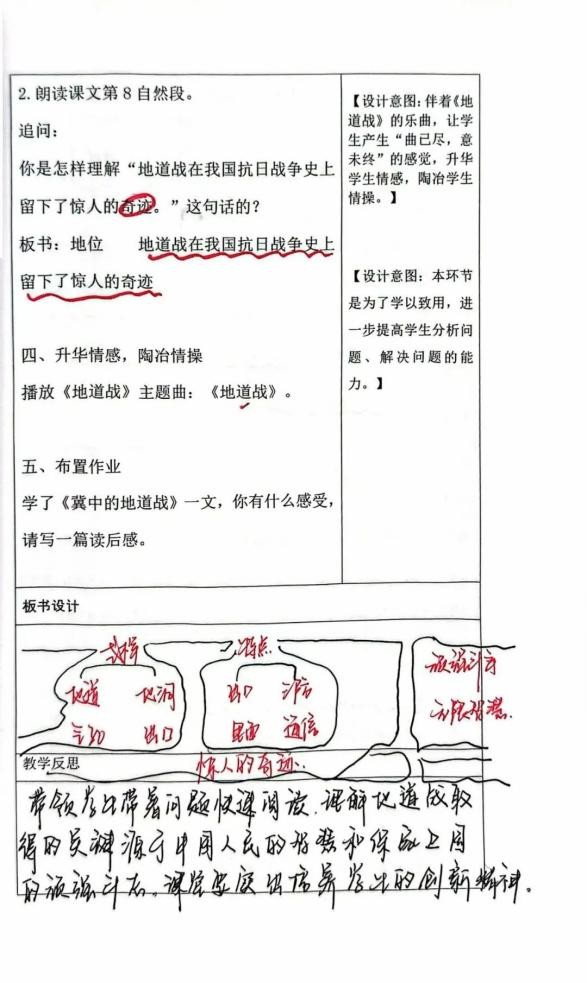 2. 朗读课文第 8 自然段。
追问：
你是怎样理解“地道战在我国抗日战争史上
留下了惊人的奇迹。”这句话的？
板书：地位 地道战在我国抗日战争史上
留下了惊人的奇迹
四、升华情感，陶冶情操
播放《地道战》主题曲：《地道战》。
五、布置作业
学了《冀中的地道战》一文，你有什么感受，
请写一篇读后感。
【设计意图：伴着《地
道战》的乐曲，让学
生产生“曲已尽，意
未终”的感觉，升华
学生情感，陶冶学生
情操。】
【设计意图：本环节
是为了学以致用，进
一步提高学生分析问
题、解决问题的能
力。】
板书设计
地道
出口
出口
通信
顽强斗志
无限智慧
教学反思
惊人的奇迹
带领学生带着问题快速阅读，理解地道战取
得的 源于中国人民的智慧和保家卫国
的顽强斗志。课堂 培养学生的创新精神。